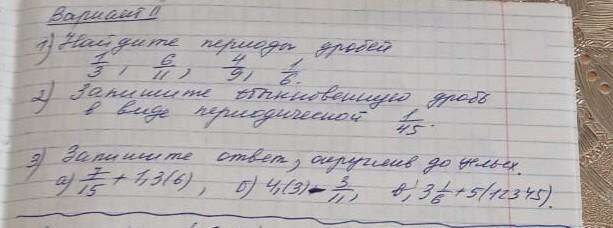 Вариант
1) Найдите периоды дробей
1/3, 6/11, 4/9, 1/6.
2) Запишите обыкновенную дробь
в виде периодической 1/45.
3) Запишите ответ, округлив до целых.
а) 7/15 + 1,3(6), б) 4,(3) - 3/11, в) 3 1/6 + 5(12345).